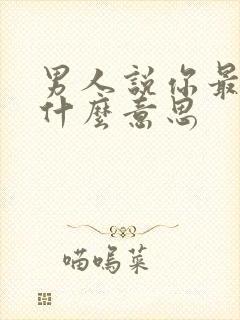 男人說你最
什麼意思
喵嗚菜